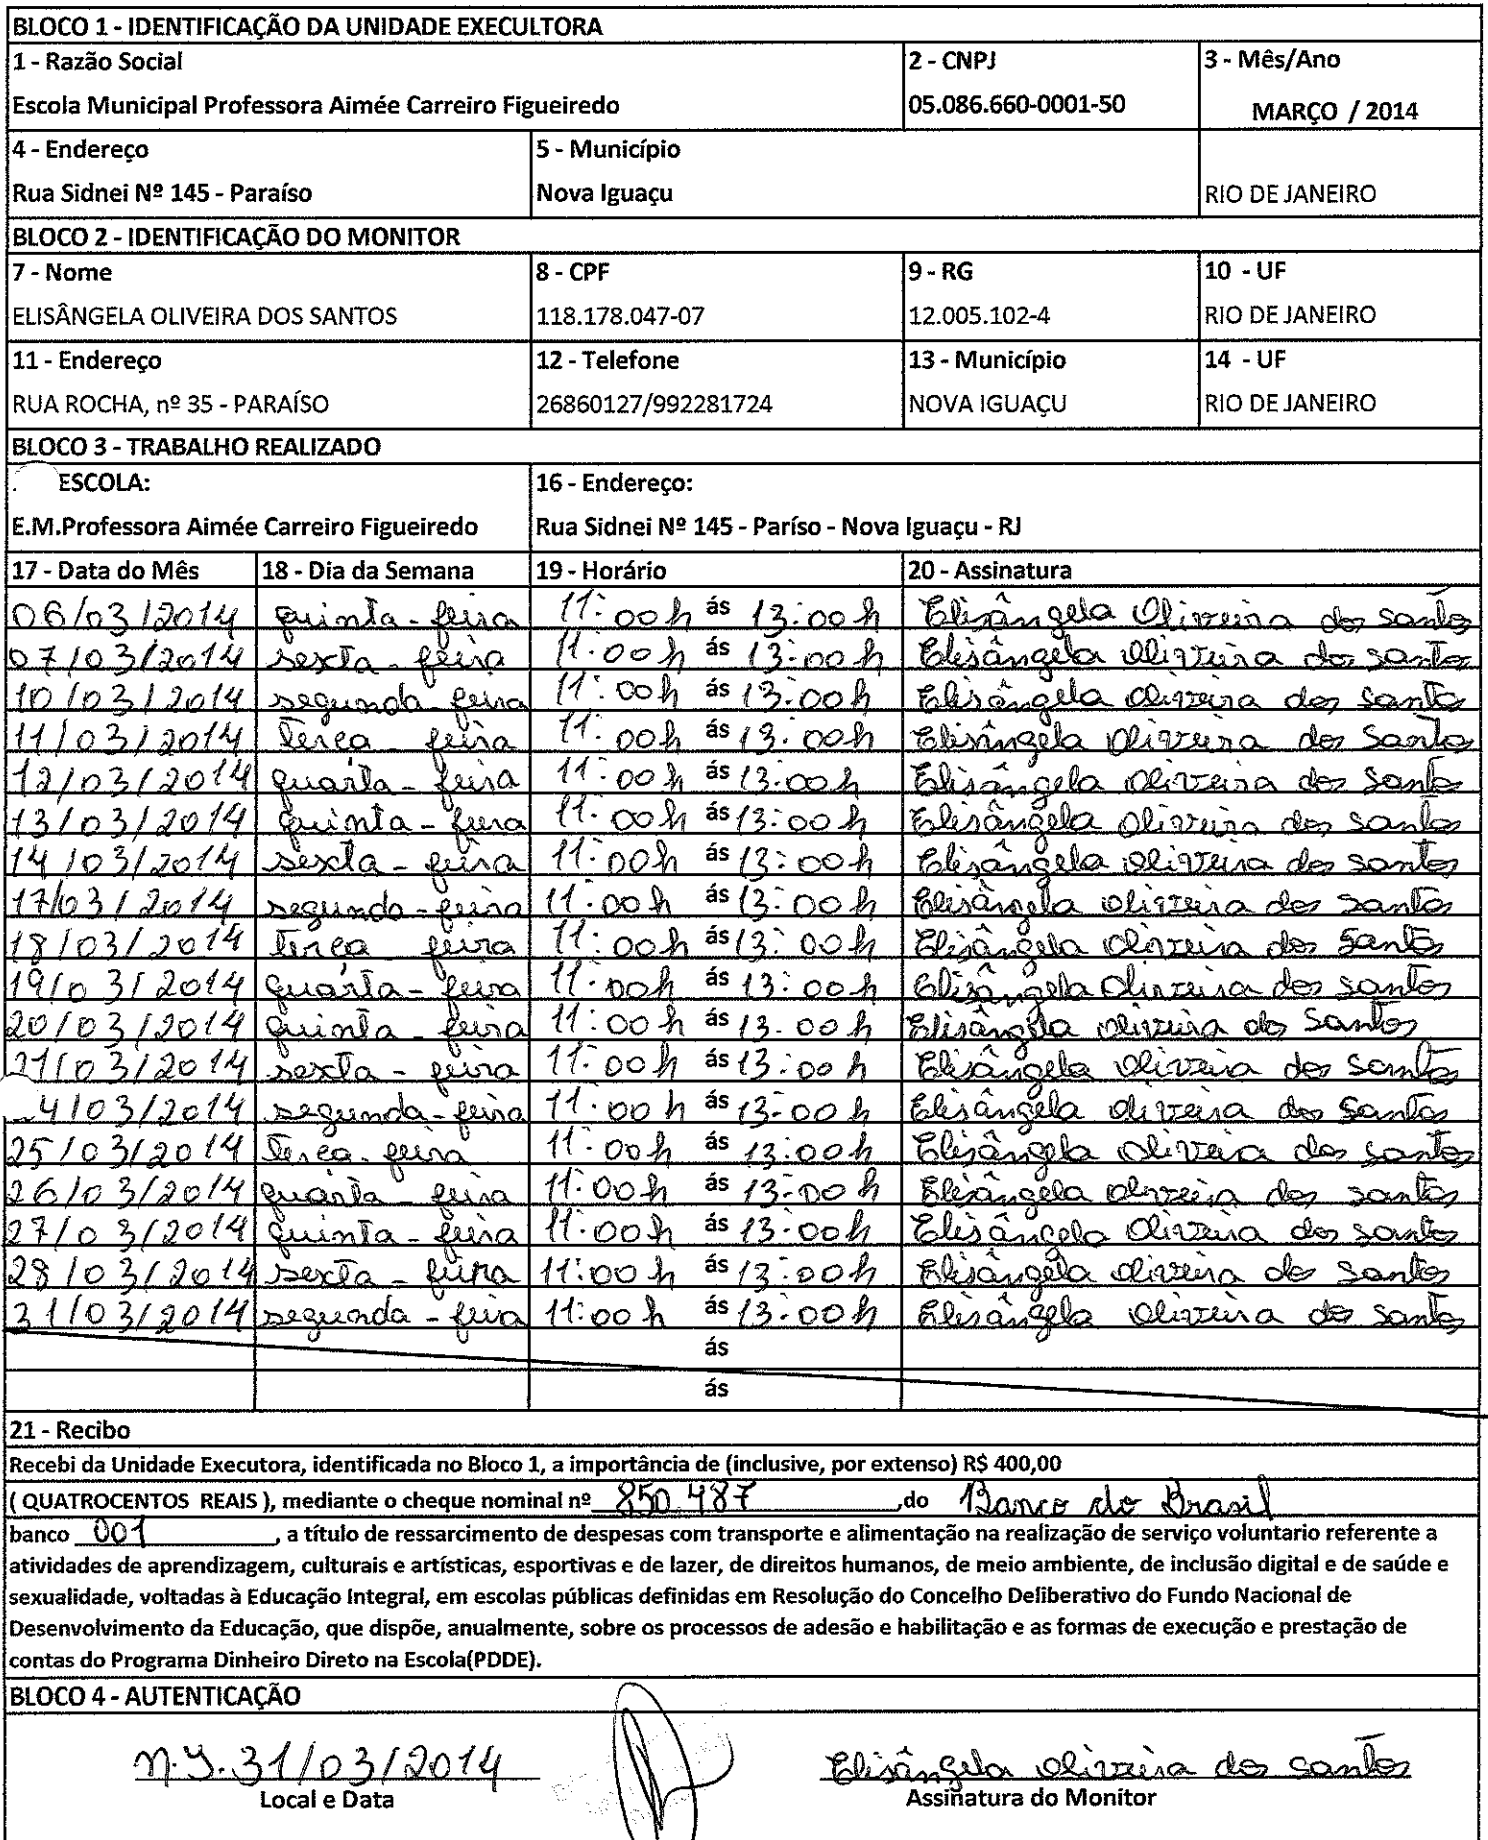 BLOCO 1 - IDENTIFICAÇÃO DA UNIDADE EXECULTORA
1 - Razão Social 2 - CNPJ 3 - Mês/Ano
Escola Municipal Professora Aimée Carreiro Figueiredo 05.086.660-0001-50 MARÇO / 2014
4 - Endereço 5 - Município
Rua Sidnei Nº 145 - Paraíso Nova Iguaçu RIO DE JANEIRO
BLOCO 2 - IDENTIFICAÇÃO DO MONITOR
7 - Nome 8 - CPF 9 - RG 10 - UF
ELISÂNGELA OLIVEIRA DOS SANTOS 118.178.047-07 12.005.102-4 RIO DE JANEIRO
11 - Endereço 12 - Telefone 13 - Município 14 - UF
RUA ROCHA, nº 35 - PARAÍSO 26860127/992281724 NOVA IGUAÇU RIO DE JANEIRO
BLOCO 3 - TRABALHO REALIZADO
ESCOLA: 16 - Endereço:
E.M.Professora Aimée Carreiro Figueiredo Rua Sidnei Nº 145 - Paríso - Nova Iguaçu - RJ
17 - Data do Mês 18 - Dia da Semana 19 - Horário 20 - Assinatura
06/03/2014 quinta-feira 11:00h ás 13:00h Elisângela Oliveira dos Santos
07/03/2014 sexta-feira 11:00h ás 13:00h Elisângela Oliveira dos Santos
10/03/2014 segunda-feira 11:00h ás 13:00h Elisângela Oliveira dos Santos
11/03/2014 terça-feira 11:00h ás 13:00h Elisângela Oliveira dos Santos
12/03/2014 quarta-feira 11:00h ás 13:00h Elisângela Oliveira dos Santos
13/03/2014 quinta-feira 11:00h ás 13:00h Elisângela Oliveira dos Santos
14/03/2014 sexta-feira 11:00h ás 13:00h Elisângela Oliveira dos Santos
17/03/2014 segunda-feira 11:00h ás 13:00h Elisângela Oliveira dos Santos
18/03/2014 terça-feira 11:00h ás 13:00h Elisângela Oliveira dos Santos
19/03/2014 quarta-feira 11:00h ás 13:00h Elisângela Oliveira dos Santos
20/03/2014 quinta-feira 11:00h ás 13:00h Elisângela Oliveira dos Santos
21/03/2014 sexta-feira 11:00h ás 13:00h Elisângela Oliveira dos Santos
4/03/2014 segunda-feira 11:00h ás 13:00h Elisângela Oliveira dos Santos
25/03/2014 terça-feira 11:00h ás 13:00h Elisângela Oliveira dos Santos
26/03/2014 quarta-feira 11:00h ás 13:00h Elisângela Oliveira dos Santos
27/03/2014 quinta-feira 11:00h ás 13:00h Elisângela Oliveira dos Santos
28/03/2014 sexta-feira 11:00h ás 13:00h Elisângela Oliveira dos Santos
31/03/2014 segunda-feira 11:00h ás 13:00h Elisângela Oliveira dos Santos
ás
ás
21 - Recibo
Recebi da Unidade Executora, identificada no Bloco 1, a importância de (inclusive, por extenso) R$ 400,00
( QUATROCENTOS REAIS ), mediante o cheque nominal nº 850.487 ,do Banco do Brasil
banco 001 , a título de ressarcimento de despesas com transporte e alimentação na realização de serviço voluntario referente a
atividades de aprendizagem, culturais e artísticas, esportivas e de lazer, de direitos humanos, de meio ambiente, de inclusão digital e de saúde e
sexualidade, voltadas à Educação Integral, em escolas públicas definidas em Resolução do Concelho Deliberativo do Fundo Nacional de
Desenvolvimento da Educação, que dispõe, anualmente, sobre os processos de adesão e habilitação e as formas de execução e prestação de
contas do Programa Dinheiro Direto na Escola(PDDE).
BLOCO 4 - AUTENTICAÇÃO
N.I. 31/03/2014 Elisângela Oliveira dos Santos
Local e Data Assinatura do Monitor